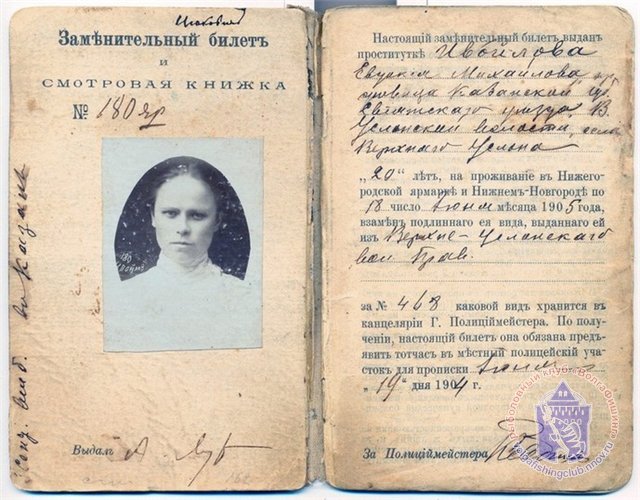 Замѣнительный билетъ
и
СМОТРОВАЯ КНИЖКА
№ 180 яр
Выдалъ
Настоящій замѣнительный билетъ выданъ
проституткѣ Ивойлова
Евдокія Михайлова
Казанской губ.
уѣзда, В.
Услонской волости, села
Верхняго Услона
„20" лѣтъ, на проживаніе въ Нижего-
родской ярмаркѣ и Нижнемъ-Новгородѣ по
18 число Іюня мѣсяца 1905 года,
взамѣнъ подлиннаго ея вида, выданнаго ей
изъ Верхне-Услонскаго
вол. Прав.
за № 468 каковой видъ хранится въ
канцеляріи Г. Полиціймейстера. По получе-
ніи, настоящій билетъ она обязана предъ-
явить тотчасъ въ мѣстный полицейскій уча-
стокъ для прописки Іюня
„19" дня 1904 г.
За Полиціймейстера
Рыболовный клуб "ВолгаФишинг"
volgafishingclub.nnov.ru